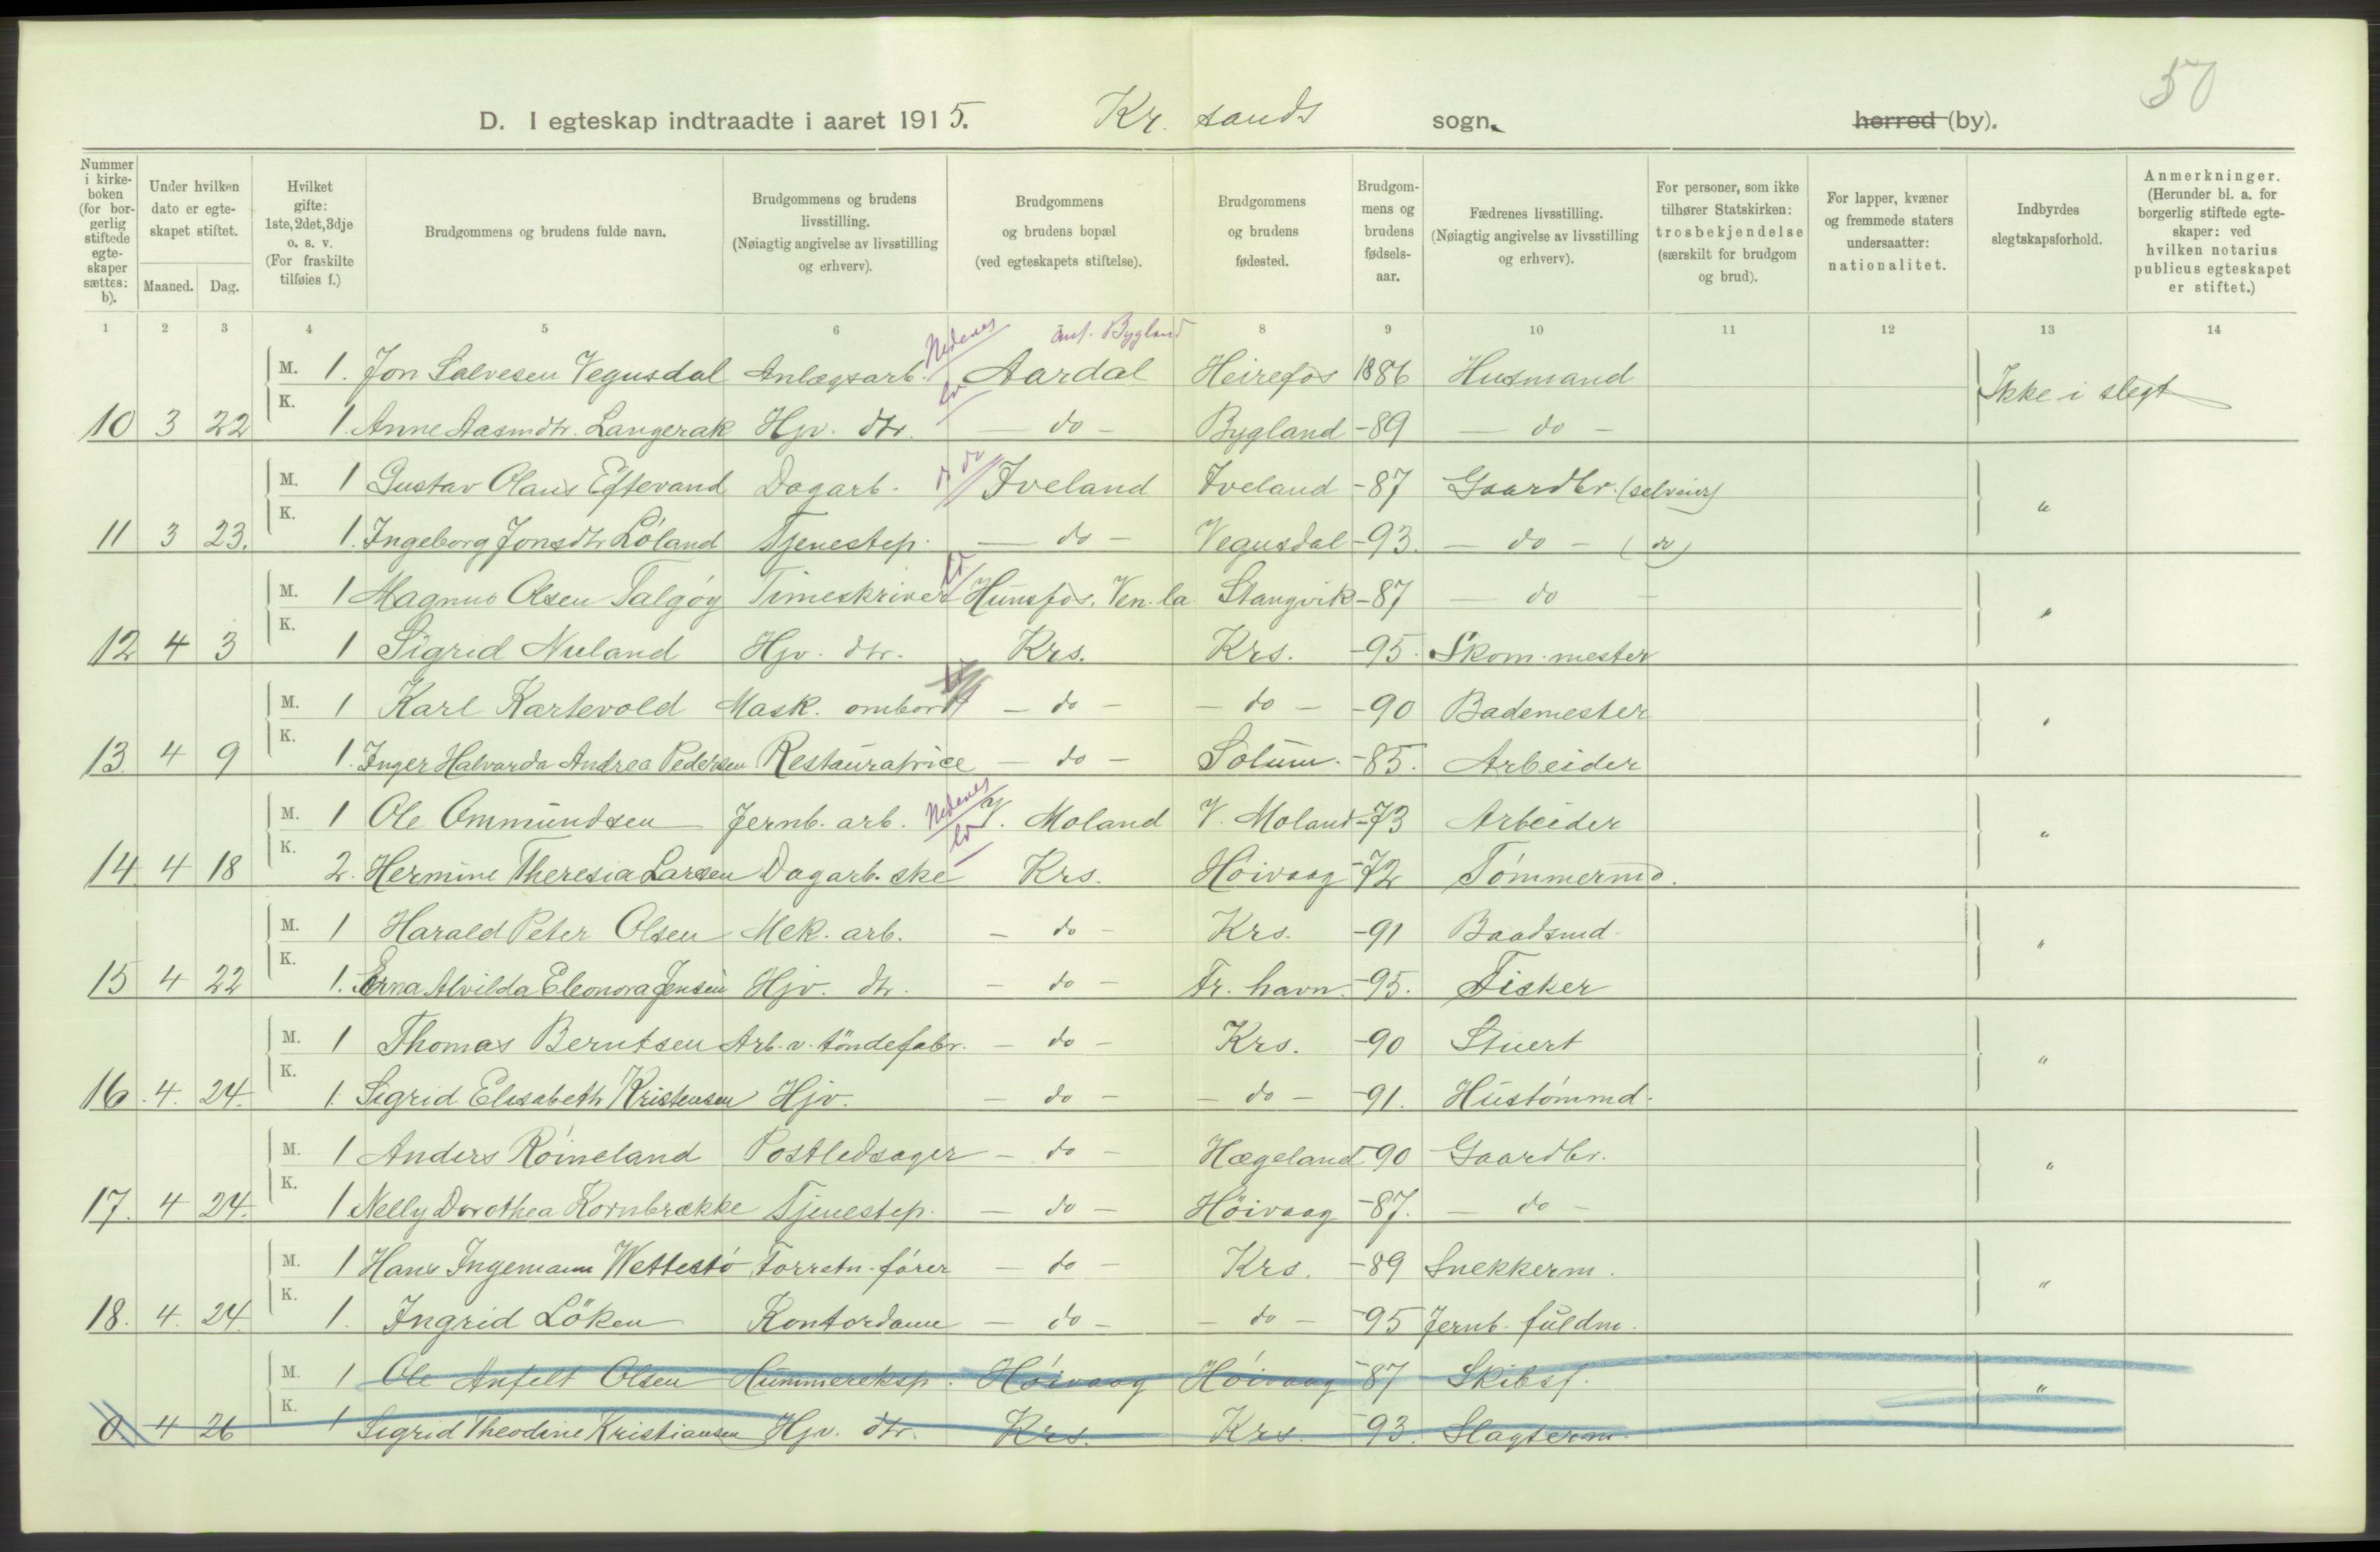 50
D. I egteskap indtraadte i aaret 1915. Kr. sands sogn. herred (by).
Nummer i kirke-boken (for bor-gerlig stiftede egte-skaper sættes: b).
Under hvilken dato er egte-skapet stiftet.
Maaned. Dag.
Hvilket gifte: 1ste, 2det, 3dje o. s. v. (For fraskilte tilføies f.)
Brudgommens og brudens fulde navn.
Brudgommens og brudens livsstilling. (Nøiagtig angivelse av livsstilling og erhverv).
Brudgommens og brudens bopæl (ved egteskapets stiftelse).
Brudgommens og brudens fødested.
Brudgom-mens og brudens fødsels-aar.
Fædrenes livsstilling. (Nøiagtig angivelse av livsstilling og erhverv).
For personer, som ikke tilhører Statskirken: trosbekjendelse (særskilt for brudgom og brud).
For lapper, kvæner og fremmede staters undersaatter: nationalitet.
Indbyrdes slegtskapsforhold.
Anmerkninger. (Herunder bl. a. for borgerlig stiftede egte-skaper: ved hvilken notarius publicus egteskapet er stiftet.)
1 2 3 4 5 6 8 9 10 11 12 13 14
Nedenes Bygland
M. 1. Jon Salvesen Vegusdal Anlægsarb. Aardal Heirefos 1886 Husmand Ikke i slegt
10 3 22 K. 1. Anne Aasmdtr. Langerak Hjv. dtr. — do — Bygland -89 — do —
do
M. 1 Gustav Olaus Eftevand Dagarb. Iveland Iveland -87 Gaardbr. (selveier) "
11 3 23. K. 1. Ingeborg Jonsdtr Löland Tjenestep. — do — Vegusdal -93. — do — (do)
M. 1 Magnus Olsen Talgøy Timeskriver Hunsfos, Ven.la Stangvik -87 — do — "
12 4 3 K. 1 Sigrid Nuland Hjv. dtr. Krs. Krs. -95. Skom.mester
M. 1 Karl Kartevold Mask. ombord — do — — do — -90 Bademester "
13. 4 9 K. 1. Inger Halvarda Andrea Pedersen Restauratrice — do — Solum. -85. Arbeider
Nedenes
M. 1 Ole Ommundsen Jernb. arb. V. Moland V. Moland -73 Arbeider "
14 4 18 K. 2. Hermine Theresia Larsen Dagarb.ske Krs. Høivaag -72 Tømmermd.
M. 1 Harald Peter Olsen Mek. arb. — do — Krs. -91 Baadsmd. "
15 4 22 K. 1. Erna Alvilda Eleonora Jensen Hjv. dtr. — do — Fr. havn. -95. Fisker
M. 1 Thomas Berntsen Arb. v. töndefabr. — do — Krs. -90 Stuert "
16. 4. 24. K. 1. Sigrid Elisabeth Kristensen Hjv. — do — — do — -91. Hustømmd.
M. 1 Anders Røineland Postledsager — do — Hægeland -90 Gaardbr. "
17. 4 24. K. 1 Nelly Dorothea Kornbrække Tjenestep. — do — Höivaag -87. — do —
M. 1 Hans Ingemann Wettestø Forretn.fører — do — Krs. -89 Snekkerm. "
18. 4. 24 K. 1. Ingrid Löken Kontordame — do — — do — -95 Jernb. fuldm.
M. 1 Ole Anfelt Olsen Hummereksp. Høivaag Høivaag -87 Skibsf. "
0. 4 26 K. 1 Sigrid Theodine Kristiansen Hjv. dtr. Krs. Krs. -93. Slagterm.